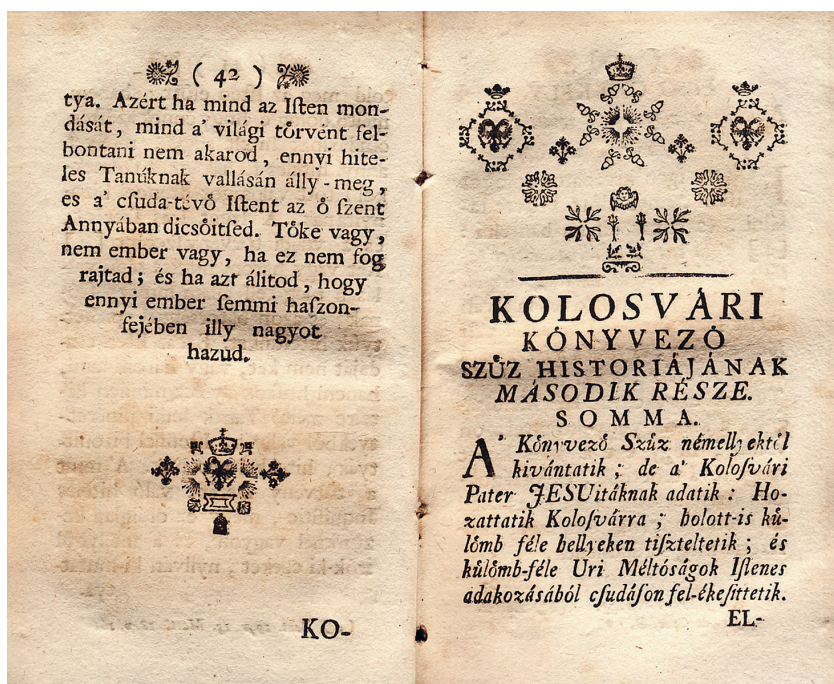 ( 42 )
tya. Azért ha mind az Iſten mon-
dását, mind a' világi tôrvént fel-
bontani nem akarod, ennyi hite-
les Tanúknak vallásán álly-meg,
es a' cſuda-tévô Iſtent az ô ſzent
Annyában dicsôitſed. Tôke vagy,
nem ember vagy, ha ez nem fog
rajtad; és ha azt álitod, hogy
ennyi ember ſemmi haſzon-
fejében illy nagyot
hazud.
KO-
KOLOSVÁRI
KÔNYVEZÔ
SZŮZ HISTORIÁJÁNAK
MÁSODIK RÉSZE.
SOMMA.
A' Kônyvezô Szůz némellyektôl
kivántatik; de a' Koloſvári
Pater JESUitáknak adatik: Ho-
zattatik Koloſvárra; holott-is ků-
lômb féle hellyeken tiſzteltetik; és
kůlômb-féle Uri Méltóságok Iſtenes
adakozásából cſudáſon fel-ékeſittetik.
EL-